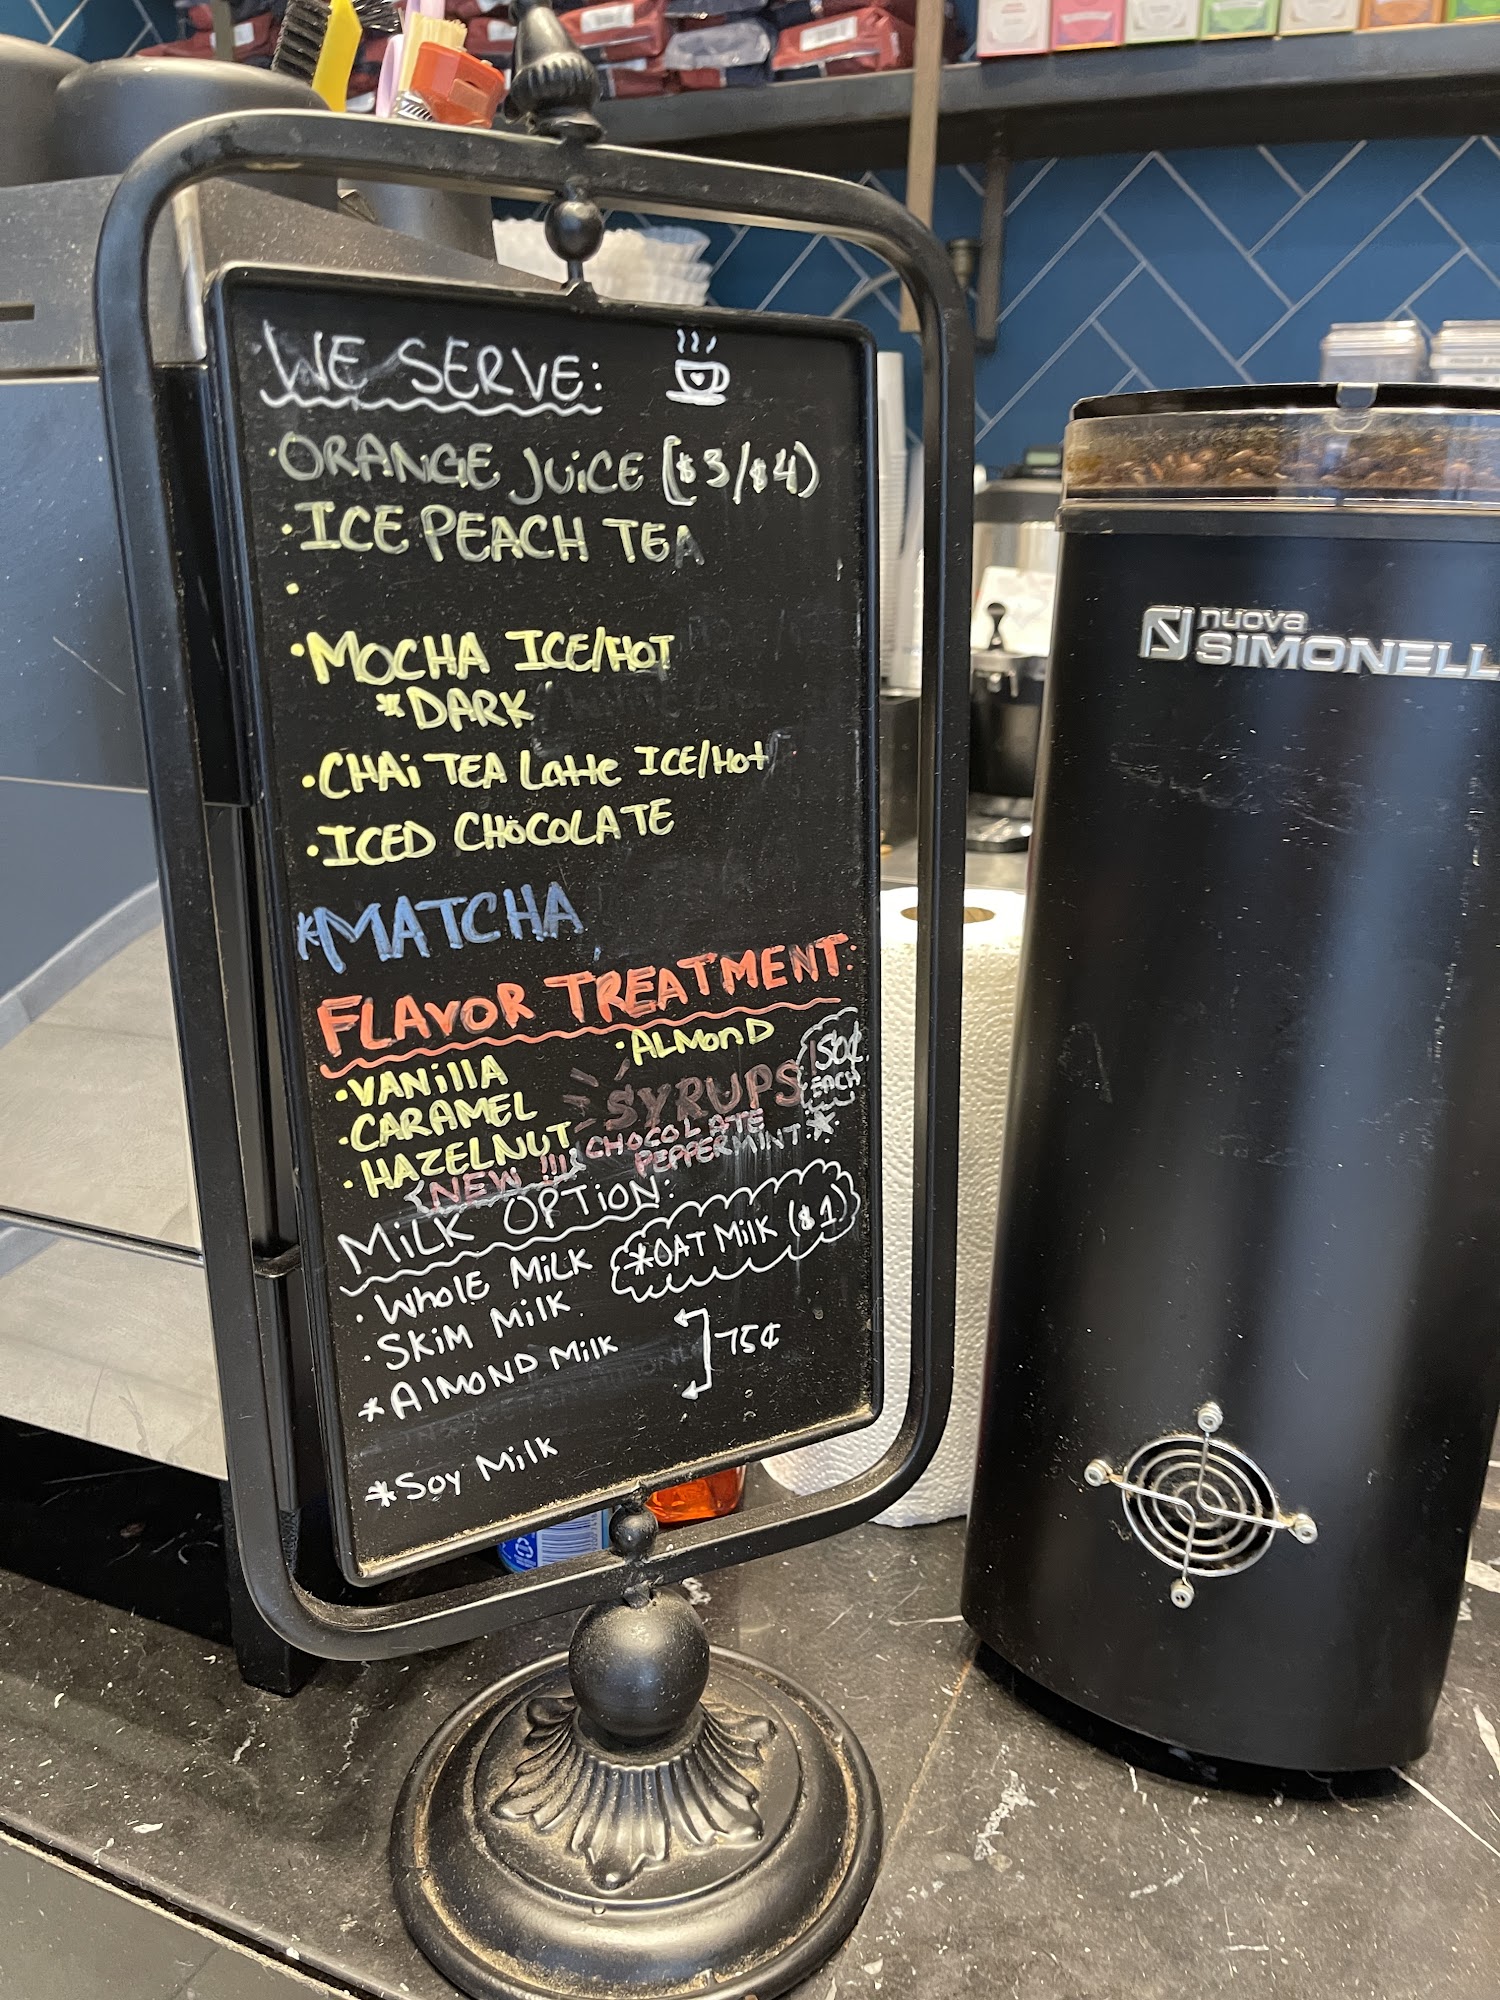 WE SERVE:
·ORANGE JUiCE ($3/$4)
·ICE PEACH TEA
·
·MOCHA ICE/HOT
*DARK
·CHAi TEA Latte ICE/Hot
·ICED CHOCOLATE
*MATCHA
FLAVOR TREATMENT:
·VANillA
·ALMonD
·CARAMEL
·HAZELNUT
SYRUPS
50¢
EACH
NEW !!!
CHOCOLATE
PEPPERMINT
MiLK OPTiON:
·WhOLE MiLK
*OAT MilK ($1)
·SKiM MilK
*AlMOND MilK
75¢
*Soy MilK
nuova
SIMONELL